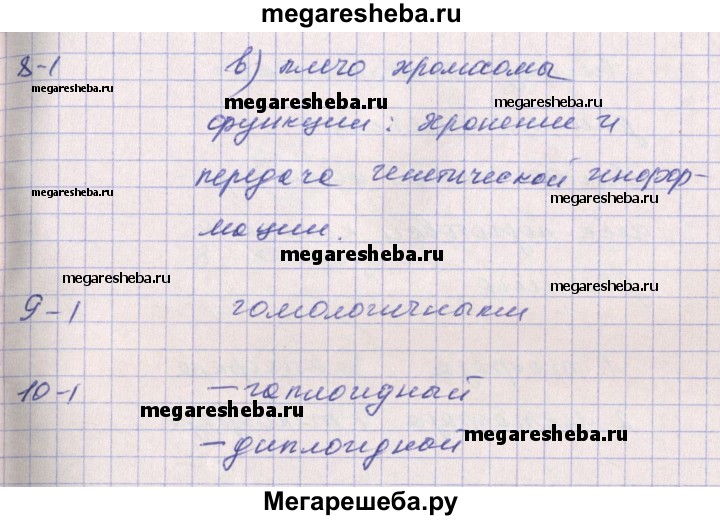 megaresheba.ru
8-1 в) плечо хромасомы
megaresheba.ru megaresheba.ru megaresheba.ru
функции: хронение и
передача генетической инфор-
megaresheba.ru megaresheba.ru
мации.
megaresheba.ru
megaresheba.ru megaresheba.ru
9-1 гомологичными
10-1 -гаплоидный
megaresheba.ru
-диплоидной
megaresheba.ru
Мегарешеба.ру